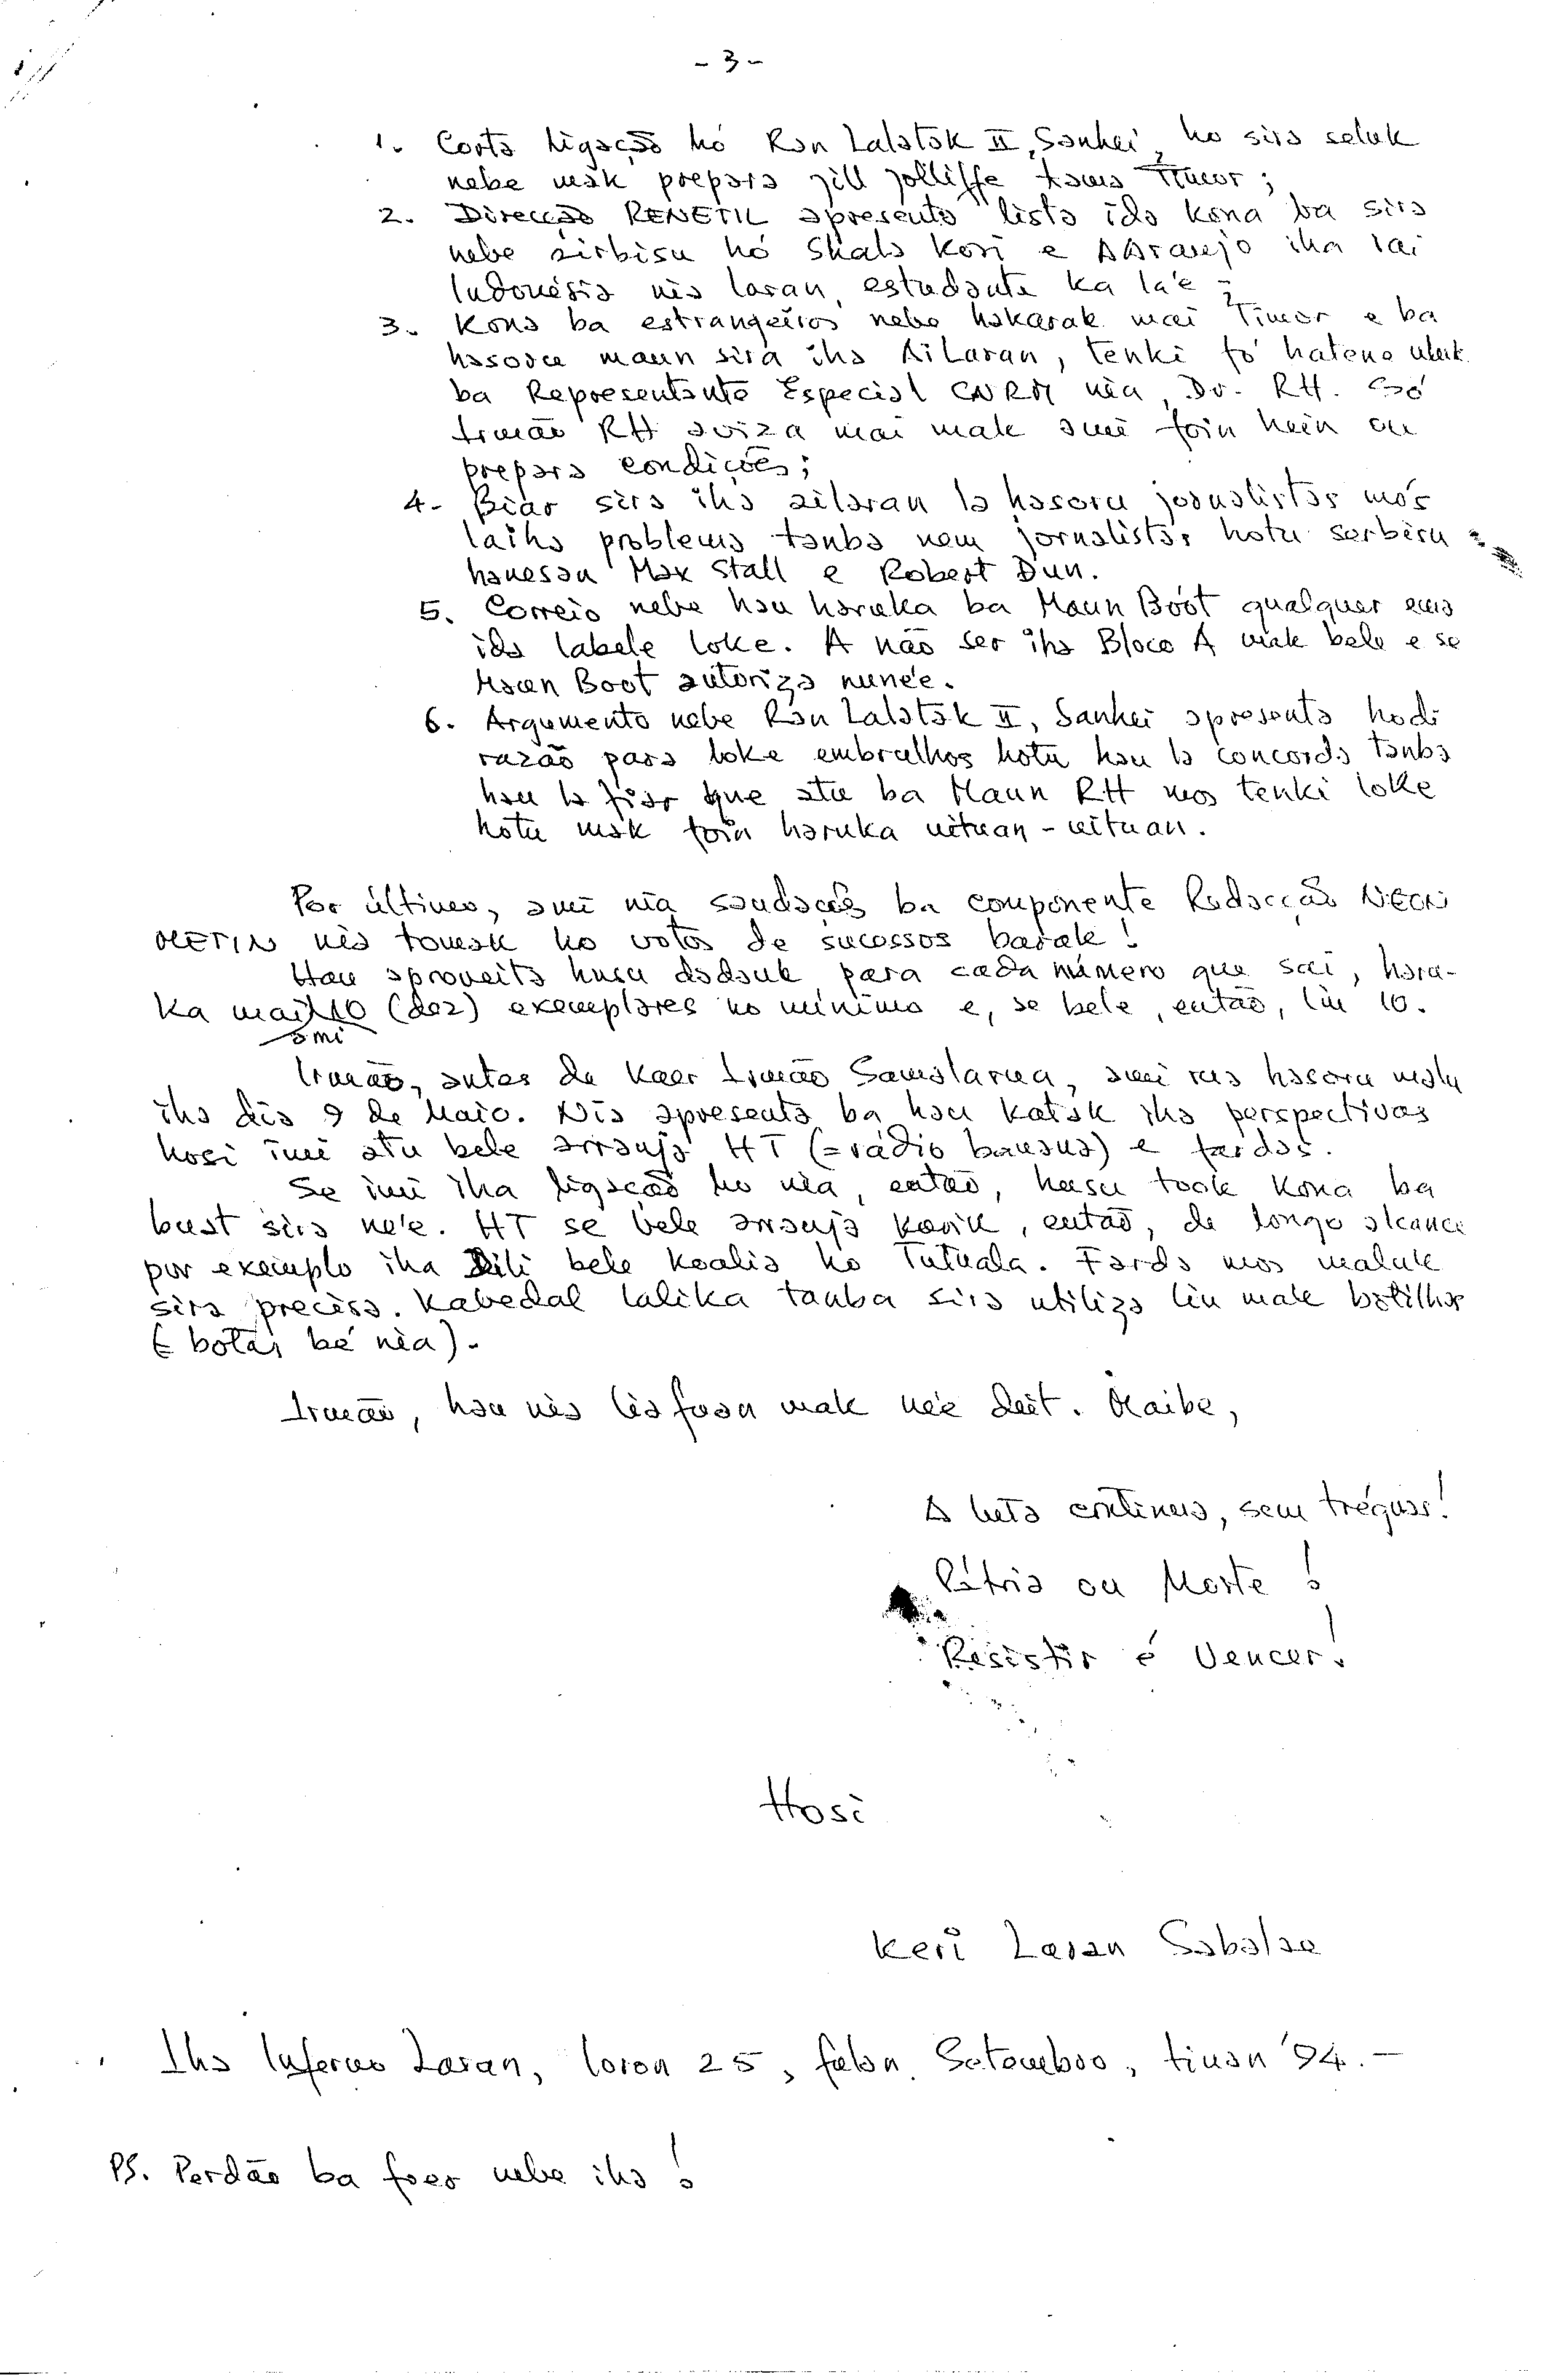 - 3 -
1. Corta ligação hó Ran Lalatak II, Sanhei, ho sira seluk
nebe mak prepara Jill Jolliffe tama Timor;
2. Direcção RENETIL apresenta lista ida kona ba sira
nebe sirbisu hó Skals Kori e AAraujo iha rai
Indonésia nia laran, estudante ka la'e;
3. Kona ba estrangeiros nebe hakarak mai Timor e ba
hasoru maun sira iha Ailaran, tenki fó hatene uluk
ba Representante Especial CNRM nia, Dr. RH. Só
Irmão RH aviza mai mak ami foin hein ou
prepara condições;
4. Biar sira iha ailaran la hasoru jornalistas mós
laiha problema tanba nem jornalistas hotu serbiru
hanesan Max Stall e Robert Dun.
5. Correio nebe hau haruka ba Maun Boot qualquer ema
ida labele loke. A não ser iha Bloco A mak bele e se
Maun Boot autoriza nune'e.
6. Argumento nebe Ran Lalatak II, Sanhei apresenta hodi
razão para loke embrulhos hotu hau la concorda tanba
hau la fiar que atu ba Maun RH mos tenki loke
hotu mak foin haruka uituan - uituan.
Por último, ami nia saudações ba componente Redacção NEON
METIN nia tomak ho votos de sucessos barak!
Hau aproveita husu dadauk, para cada número que sai, haru-
ka mai 10 (dez) exemplares no mínimo e, se bele, então, liu 10.
ami
Irmão, antes de kaer Irmão Samalarua, ami rua hasoru malu
iha dia 9 de Maio. Nia apresenta ba hau katak iha perspectivas
hosi imi atu bele arranja HT (= rádio ) e fardas.
Se imi iha ligação ho nia, então, husu took kona ba
buat sira ne'e. HT se bele arranja karik, então, de longo alcance
por exemplo iha Dili bele koalia ho Tutuala. Farda mos maluk
sira precisa. Kabedal lalika tanba sira utiliza liu mak botilhas
(= botas bé nia).
Irmão, hau nia lia fuan mak ne'e deit. Maibe,
A luta continua, sem tréguas!
Pátria ou Morte!
Resistir é Vencer!
Hosi
Keri Laran Sabalae
Iha Inferno Laran, loron 25, fulan Setembro, tinan '94. -
PS. Perdão ba foer nebe iha!